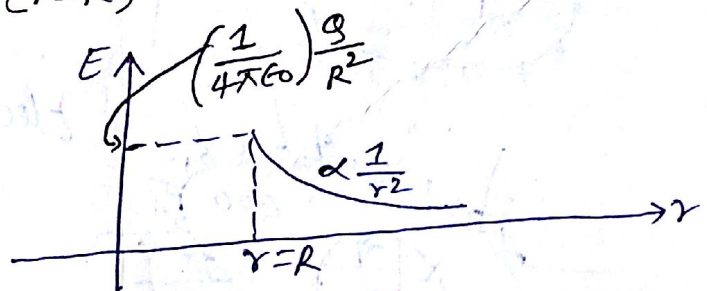 E (1/4πε0) Q/R²
∝ 1/r²
r
r=R